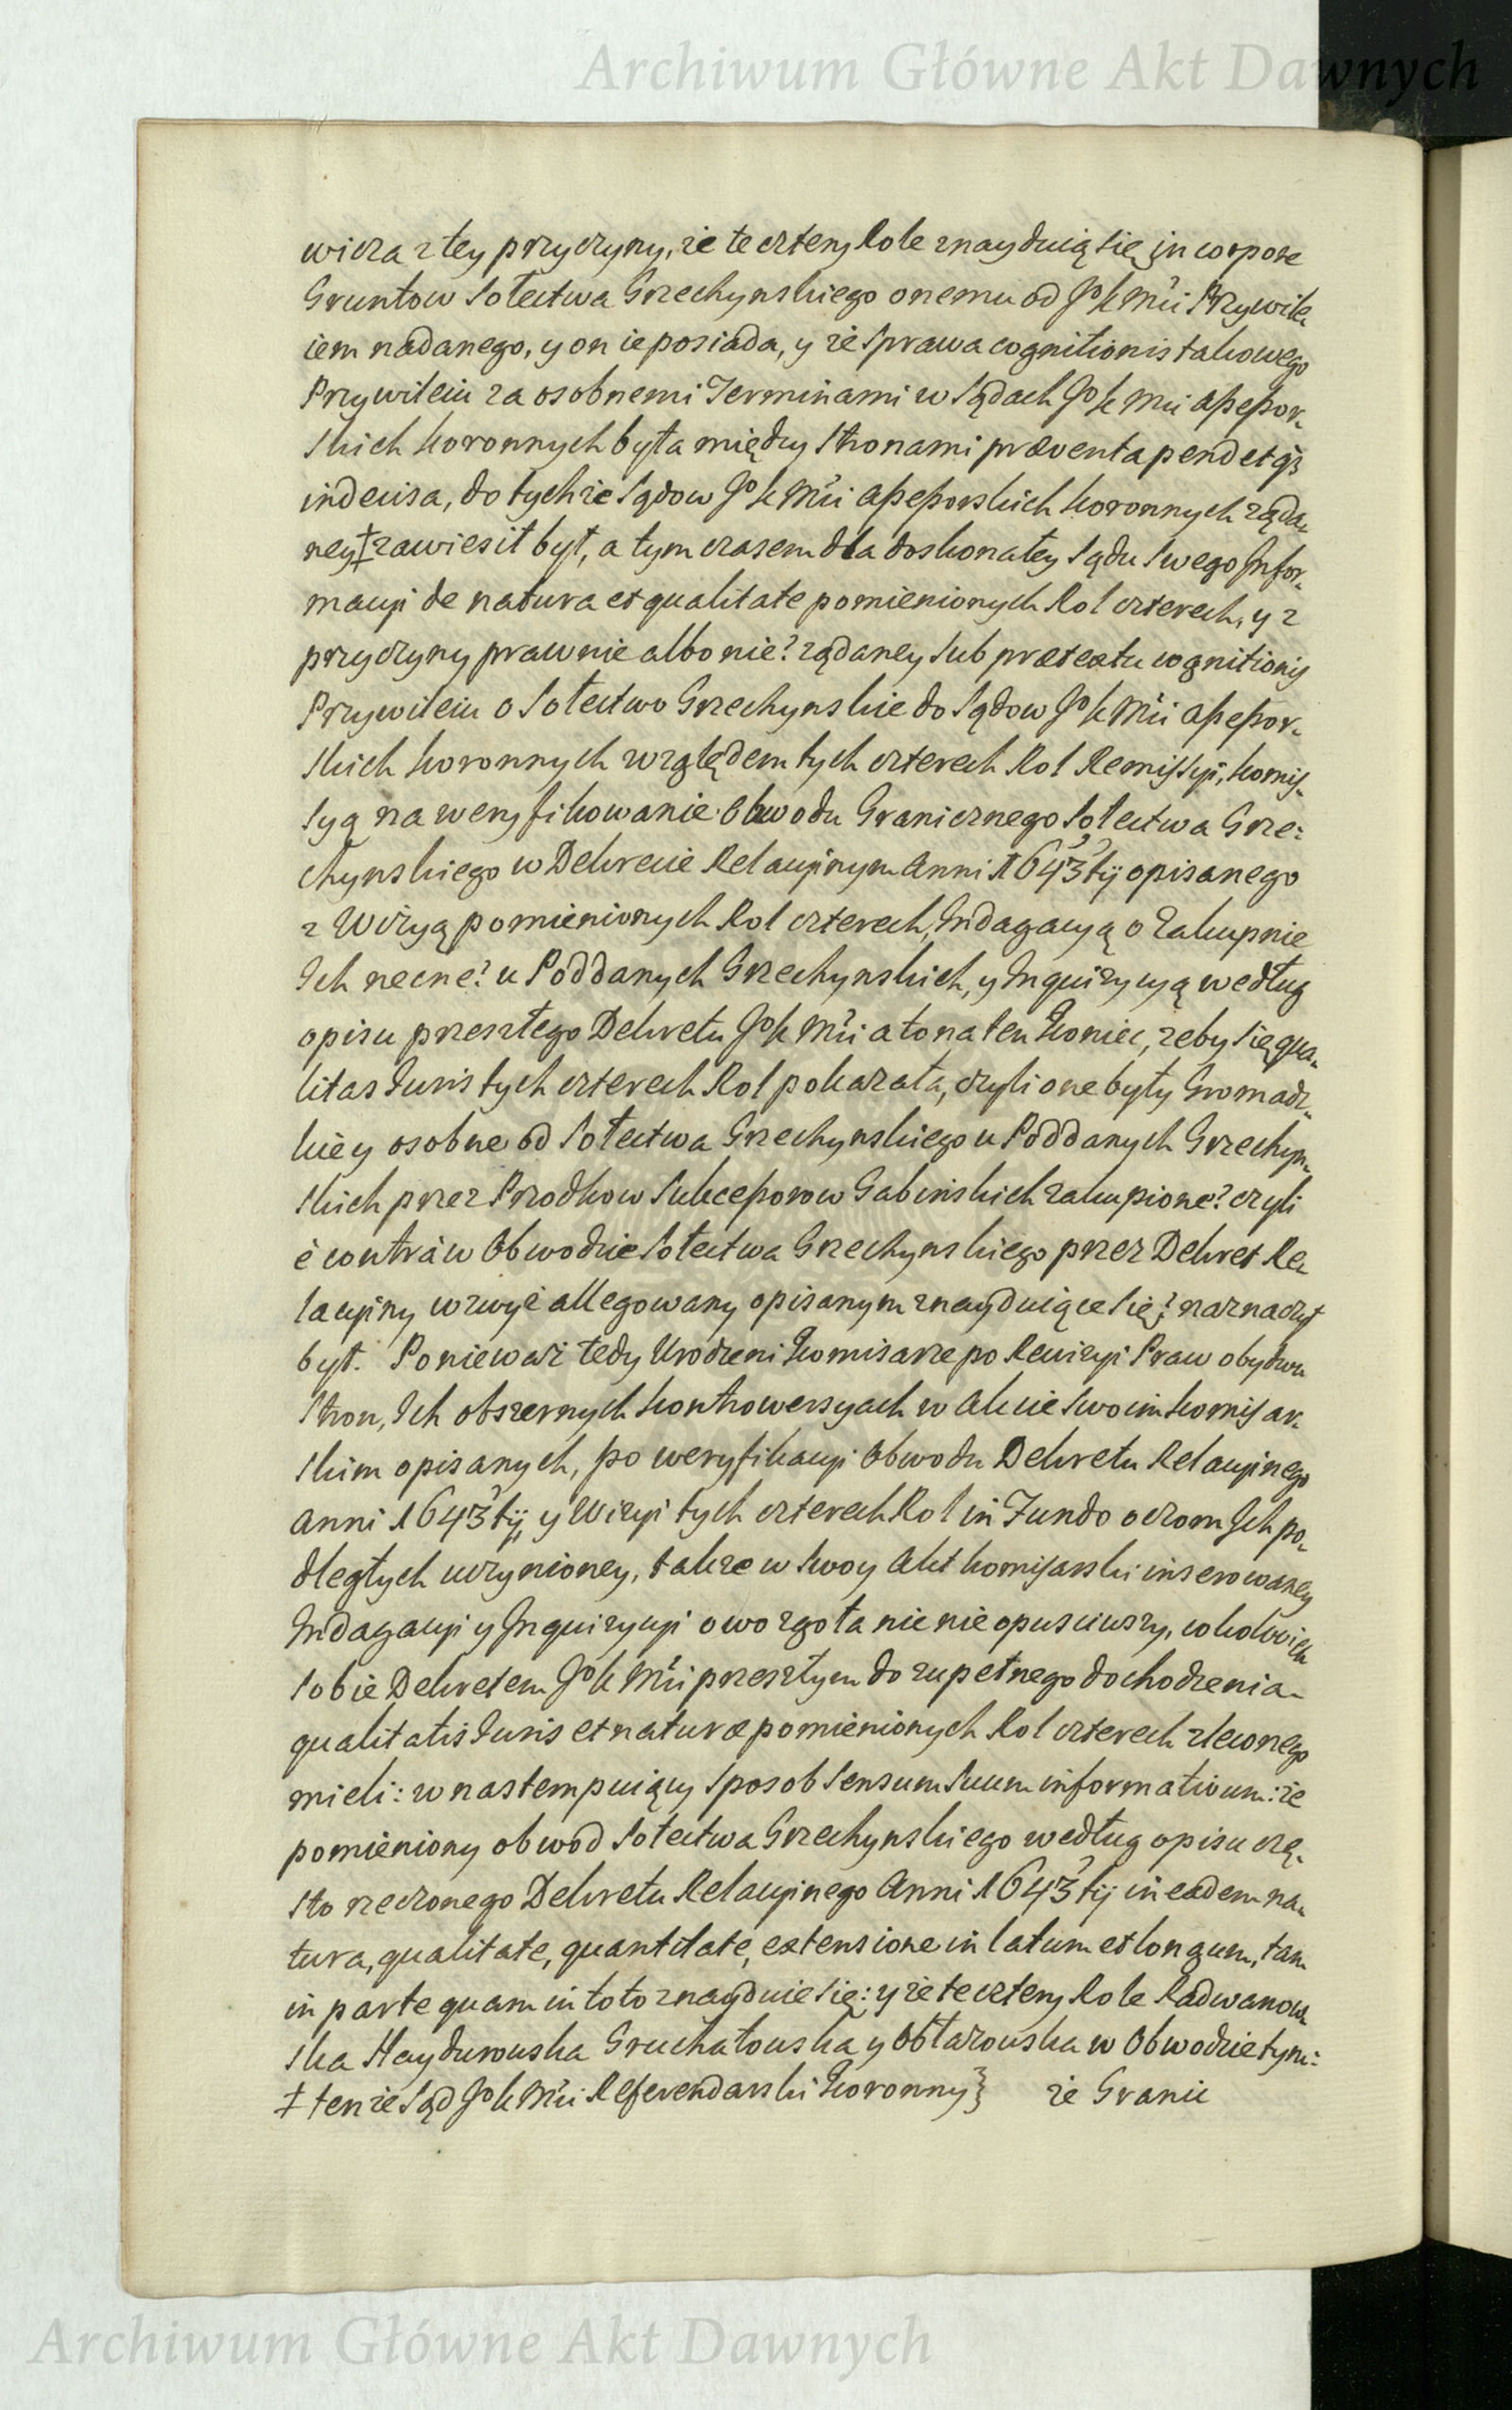 Archiwum Główne Akt Dawnych
wicza z tey przyczyny, że te cztery Role znayduią się in corpore
Gruntow Sołectwa Grzechynskiego onemu od JoKMci Przywile„
iem nadanego, y on ie posiada, y że Sprawa cognitionis takowego
Przywileiu za osobnemi Terminami w Sądach JoKMci Assessor„
skich Koronnych była między Stronami præventa pendet q3
indecisa, do tychże Sądow JoKMci Assessorskich Koronnych żąda„
ney ‡ zawiesił był, a tym czasem dla doskonałey Sądu Swego Infor„
macyi de natura et qualitate pomienionych Rol czterech, y z
przyczyny prawnie albo nie? żądaney sub prætextu cognitionis
Przywileiu o Sołectwo Grzechynskie do Sądow JoKMci Assessor„
skich Koronnych względem tych czterech Rol Remissyi, Komis„
syą na weryfikowanie Obwodu Granicznego Sołectwa Grze:
chynskiego w Dekrecie Relacyinym Anni 1643tij opisanego
z Wizyą pomienionych Rol czterech, Indagacyą o Zakupnie
Ich necne? u Poddanych Grzechynskich, y Inquizycyą według
opisu przeszłego Dekretu JoKMci a to na ten Koniec, zeby się qua„
litas Juris tych czterech Rol pokazała, czyli one były Gromadz„
kie y osobne od Sołectwa Grzechynskiego u Poddanych Grzechyn„
skich przez Przodkow Sukcessorow Gabinskich zakupione? czyli
è contrà w Obwodzie Sołectwa Grzechynskiego przez Dekret Re„
lacyiny wzwyż allegowany opisanym znayduiące się? naznaczył
był. Ponieważ tedy Urodzeni Komisarze po Rewizyi Praw obydwu
Stron, Ich obszernych Kontrowersyach w Akcie Swoim Komisar„
skim opisanych, po weryfikacyi Obwodu Dekretu Relacyinego
Anni 1643tij, y Wizyi tych czterech Rol in Fundo oczom Ich po„
dległych uczynioney, także w Swoy Akt Komisarski inserowaney
Indagacyi y Inquizycyi owo zgoła nic nie opusciwszy, cokolwiek
Sobie Dekretem JoKMci przeszłym do zupełnego dochodzenia
qualitatis Juris et naturæ pomienionych Rol czterech zleconego
mieli: w nastempuiący Sposob Sensum Suum informativum: że
pomieniony obwod Sołectwa Grzechynskiego według opisu czę„
sto rzeczonego Dekretu Relacyinego Anni 1643tij in eadem na„
tura, qualitate, quantitate, extensione in latum et longum, tam
in parte quam in toto znayduie się: y że te cztery Role Radwanow„
ska Haydurowska Gruchałowska y Ołtarzowska w Obwodzie tym:
‡ tenże Sąd JoKMci Referendarski Koronny} że Granic
Archiwum Główne Akt Dawnych